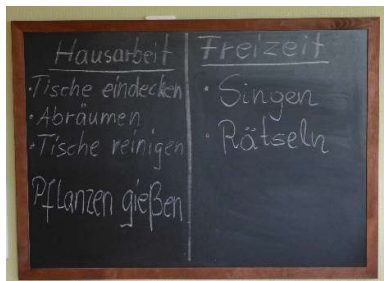 Hausarbeit
· Tische eindecken
· Abräumen
· Tische reinigen
Pflanzen gießen
Freizeit
· Singen
· Rätseln